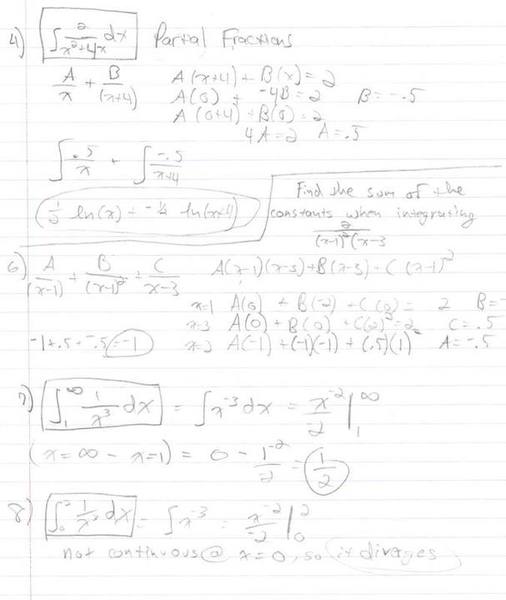 4) ∫ 2/(x²+4x) dx Partial Fractions
A/x + B/(x+4) A(x+4) + B(x) = 2
A(0) + -4B = 2 B = -.5
A(0+4) + B(0) = 2
4A = 2 A = .5
∫ .5/x + ∫ -.5/(x+4)
½ ln(x) + -½ ln(x+4)
Find the sum of the
constants when integrating
2/(x-1)²(x-3
6) A/(x-1) + B/(x-1)² + C/(x-3) A(x-1)(x-3) + B(x-3) + C(x-1)²
x=1 A(0) + B(-2) + C(0) = 2 B=-
x=3 A(0) + B(0) + C(2)² = 2 C = .5
-1+.5+-.5 = -1 x=2 A(-1) + (-1)(-1) + (.5)(1) A = -.5
7) ∫₁^∞ 1/x³ dx = ∫ x⁻³ dx = x⁻²/-2 |₁^∞
(x=∞ - x=1) = 0 - 1⁻²/-2 = 1/2
8) ∫₀² 1/x³ dx = ∫ x⁻³ = x⁻²/-2 |₀²
not continuous @ x=0, so it diverges